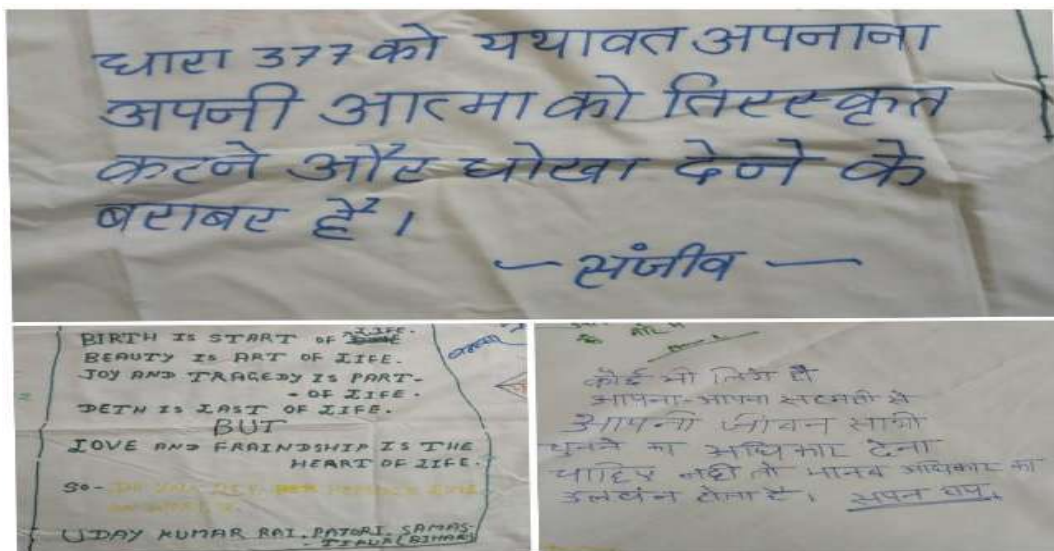 धारा 377 को यथावत अपनाना
अपनी आत्मा को तिरस्कृत
करने और धोखा देने के
बराबर है।
— संजीव —
BIRTH IS START OF LIFE.
BEAUTY IS ART OF LIFE.
JOY AND TRAGEDY IS PART-
- OF LIFE.
DETH IS LAST OF LIFE.
BUT
LOVE AND FRAINDSHIP IS THE
HEART OF LIFE.
SO-
UDAY KUMAR RAI. PATORI. SAMAS-
- TIPUR (BIHAR)
कोई भी लिंग हो
आपना-आपना सहमती से
आपनी जीवन साथी
चुनने का अधिकार देना
चाहिए नही तो मानव अधिकार का
उलघंन होता है।